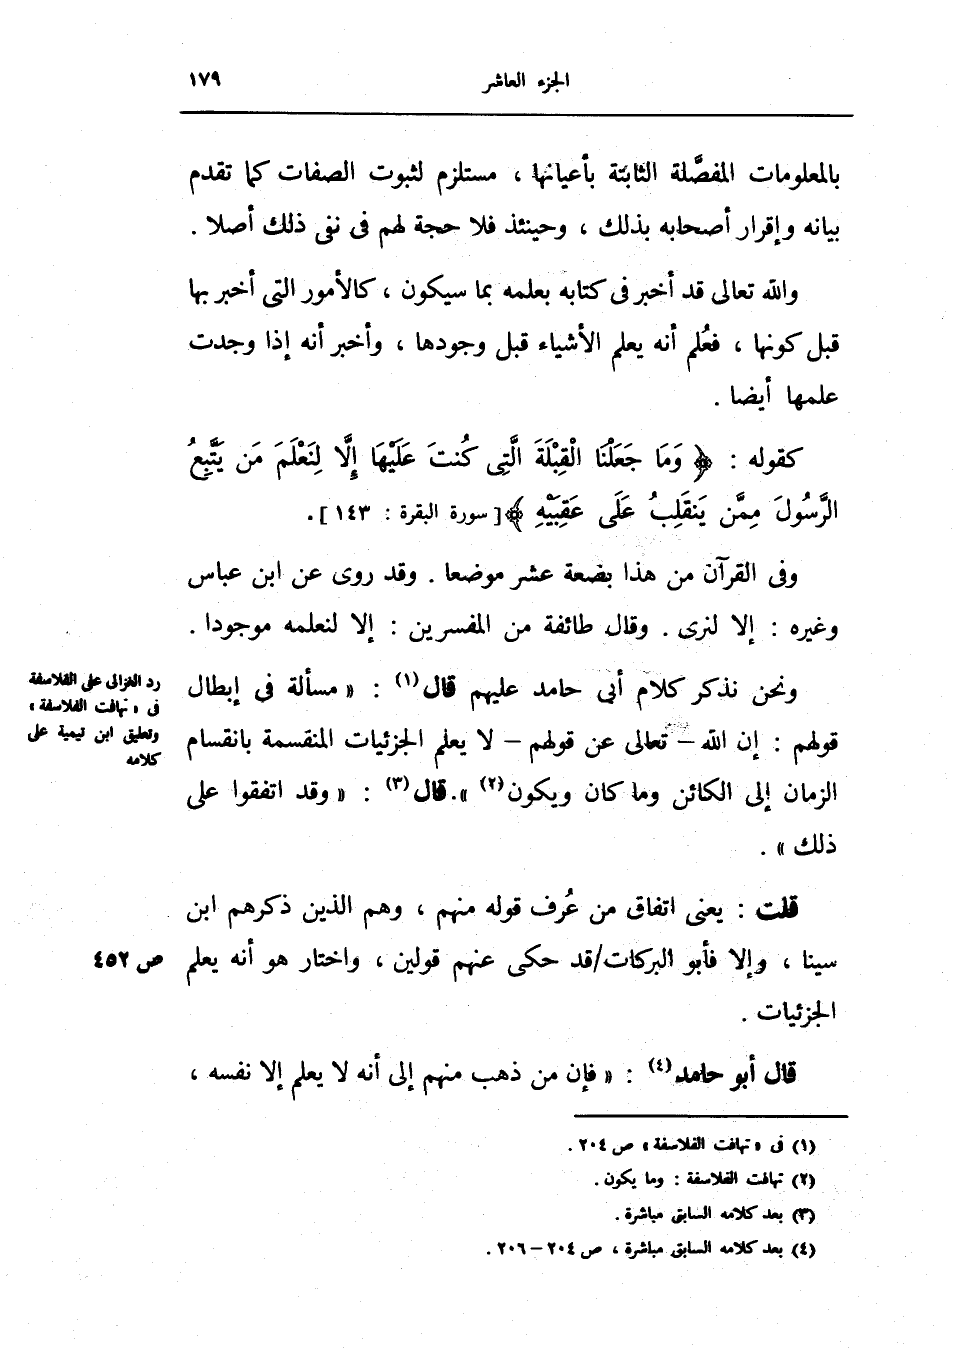 الجزء العاشر ١٧٩
بالمعلومات المفصَّلة الثابتة بأعيانها ، مستلزم لثبوت الصفات كما تقدم
بيانه وإقرار أصحابه بذلك ، وحينئذ فلا حجة لهم فى نفى ذلك أصلا .
والله تعالى قد أخبر فى كتابه بعلمه بما سيكون ، كالأمور التى أخبر بها
قبل كونها ، فعُلم أنه يعلم الأشياء قبل وجودها ، وأخبر أنه إذا وجدت
علمها أيضا .
كقوله : ﴿ وَمَا جَعَلْنَا الْقِبْلَةَ الَّتِى كُنتَ عَلَيْهَا إِلَّا لِنَعْلَمَ مَن يَتَّبِعُ
الرَّسُولَ مِمَّن يَنقَلِبُ عَلَى عَقِبَيْهِ ﴾ [ سورة البقرة : ١٤٣ ] .
وفى القرآن من هذا بضعة عشر موضعا . وقد روى عن ابن عباس
وغيره : إلا لنرى . وقال طائفة من المفسرين : إلا لنعلمه موجودا .
ونحن نذكر كلام أبى حامد عليهم قال(١) : « مسألة فى إبطال
قولهم : إن الله – تعالى عن قولهم – لا يعلم الجزئيات المنقسمة بانقسام
الزمان إلى الكائن وما كان ويكون(٢) ». قال(٣) : « وقد اتفقوا على
ذلك » .
رد الغزالى على الفلاسفة
فى « تهافت الفلاسفة »
وتعليق ابن تيمية على
كلامه
قلت : يعنى اتفاق من عُرف قوله منهم ، وهم الذين ذكرهم ابن
سينا ، وإلا فأبو البركات/قد حكى عنهم قولين ، واختار هو أنه يعلم
ص ٤٥٢
الجزئيات .
قال أبو حامد(٤) : « فإن من ذهب منهم إلى أنه لا يعلم إلا نفسه ،
(١) فى « تهافت الفلاسفة » ص ٢٠٤ .
(٢) تهافت الفلاسفة : وما يكون .
(٣) بعد كلامه السابق مباشرة .
(٤) بعد كلامه السابق مباشرة ، ص ٢٠٤ – ٢٠٦ .